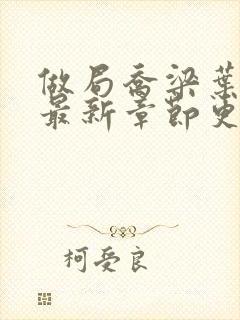 做局乔梁葉
最新章節更
柯受良